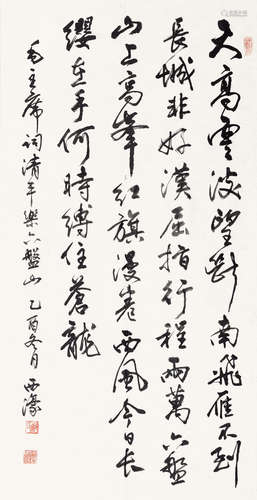 天高雲淡望斷南飛雁不到
長城非好漢屈指行程兩萬六盤
山上高峰紅旗漫卷西風今日長
纓在手何時縛住蒼龍
毛主席詞清平樂六盤山乙酉冬月西濠